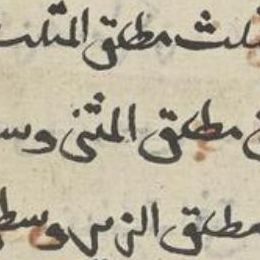 مثلث مطلق المثلث
مطلق المثنى وسـ
مطلق الزير وسطى